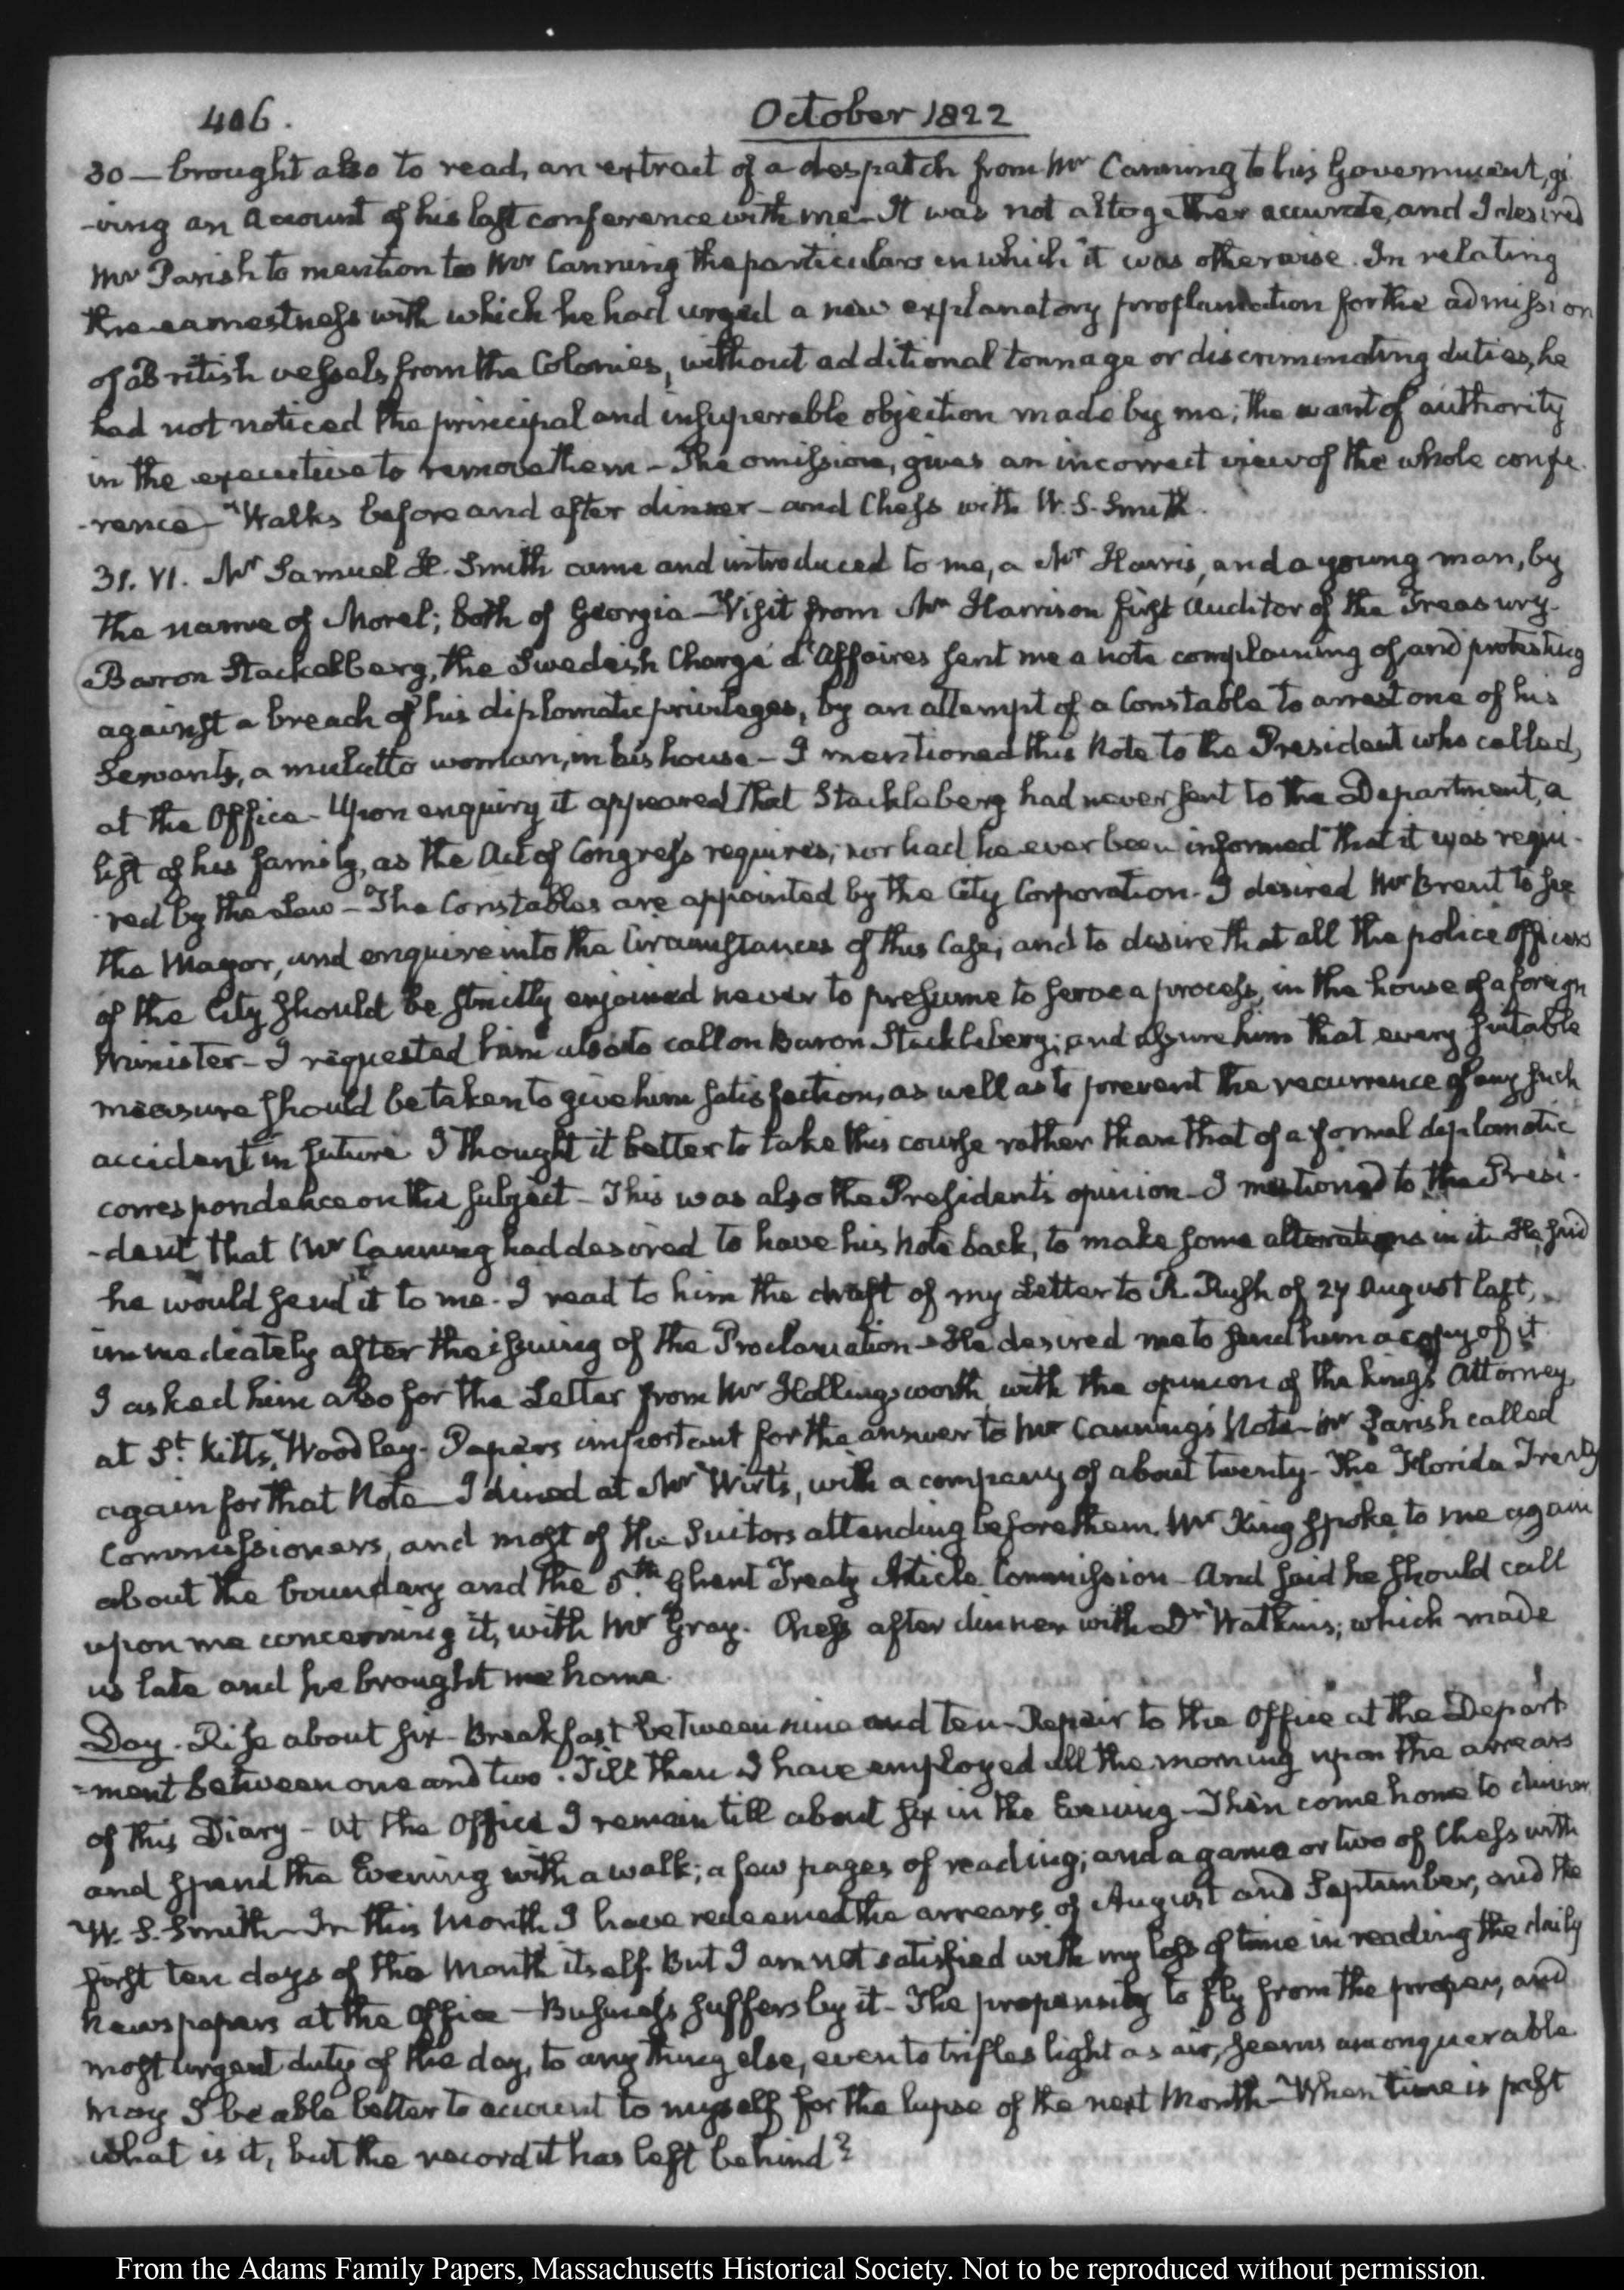 406.
October 1822
30 — brought also to read, an extract of a despatch from Mr Canning to his Government, gi
-ving an account of his last conference with me — It was not altogether accurate, and I desired
Mr Parish to mention to Mr Canning the particulars in which it was otherwise. In relating
the earnestness with which he had urged a new explanatory proclamation for the admission
of British vessels from the Colonies, without additional tonnage or discriminating duties, he
had not noticed the principal and insuperable objection made by me; the want of authority
in the executive to remove them — The omission, gives an incorrect view of the whole confe-
-rence — Walks before and after dinner — and Chess with W. S. Smith.
31. VI. Mr Samuel H. Smith came and introduced to me, a Mr Harris, and a young man, by
the name of Morel; both of Georgia — Visit from Mr Harrison first Auditor of the Treasury.
Baron Stackelberg, the Swedish Chargé d'Affaires sent me a note complaining of, and protesting
against a breach of his diplomatic privileges, by an attempt of a Constable to arrest one of his
Servants, a mulatto woman, in his house — I mentioned this Note to the President who called,
at the Office — Upon enquiry it appeared that Stackleberg had never sent to the Department, a
list of his family, as the Act of Congress requires; nor had he ever been informed that it was requi-
-red by the Law — The Constables are appointed by the City Corporation. I desired Mr Brent to see
the Mayor, and enquire into the Circumstances of this Case; and to desire that all the police officers
of the City should be strictly enjoined never to presume to serve a process, in the house of a foreign
Minister — I requested him also to call on Baron Stackleberg; and assure him that every suitable
measure should be taken to give him satisfaction, as well as to prevent the recurrence of any such
accident in future. I thought it better to take this course rather than that of a formal diplomatic
correspondence on the subject — This was also the President's opinion — I mentioned to the Presi-
-dent, that Mr Canning had desired to have his Note back, to make some alterations in it — He said
he would send it to me. I read to him the draft of my Letter to R. Rush of 27 August last,
immediately after the issuing of the Proclamation — He desired me to send him a copy of it
I asked him also for the Letter from Mr Hollingsworth, with the opinion of the king's Attorney,
at St. Kitts, Woodley. Papers important for the answer to Mr Canning's Note — Mr Parish called
again for that Note — I dined at Mr Wirt's, with a company of about twenty — The Florida Treaty
Commissioners, and most of the Suitors attending before them. Mr King spoke to me again
about the boundary and the 5th. Ghent Treaty Article Commission — And said he should call
upon me concerning it, with Mr Gray. Chess after dinner with Dr Watkins; which made
us late and he brought me home.
Day. Rise about six — Breakfast between nine and ten — Repair to the Office at the Depart
=ment between one and two. Till then I have employed all the morning upon the arrears
of this Diary — At the Office I remain till about six in the Evening — Then come home to dinner
and spend the Evening with a walk; a few pages of reading; and a game or two of Chess with
W. S. Smith — In this Month I have redeemed the arrears of August and September, and the
first ten days of the Month itself. But I am not satisfied with my loss of time in reading the daily
Newspapers at the Office — Business suffers by it — The propensity to fly from the proper, and
most urgent duty of the day, to any thing else, even to trifles light as air, seems unconquerable
May I be able better to account to myself for the lapse of the next Month — When time is past
what is it, but the record it has left behind?
From the Adams Family Papers, Massachusetts Historical Society. Not to be reproduced without permission.